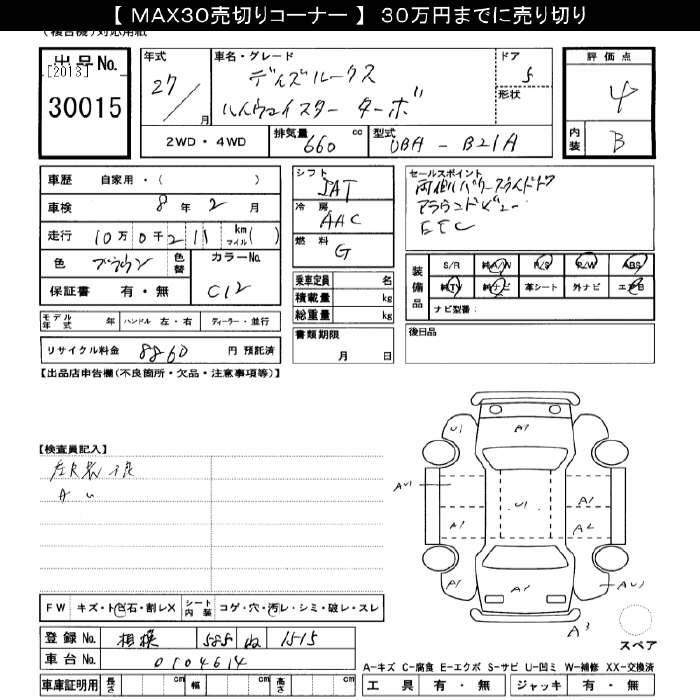 【 MAX30売切りコーナー 】 30万円までに売り切り
(複合機)対応用紙
出品No.
[2013]
30015
年式
27/
月
車名・グレード
デイズルークス
ハイウェイスター ターボ
ドア
5
形状
評価点
4
内装
B
2WD・4WD
排気量
660
cc
型式
DBA-B21A
車歴 自家用・( )
車検 8 年 2 月
走行 10万0千211 km マイル( )
色 ブラウン 色替
カラーNo.
C12
保証書 有・無
シフト
IAT
冷房
AAC
燃料
G
乗車定員 名
積載量 kg
総重量 kg
セールスポイント
両側パワースライドドア
アラウンドビュー
ETC
装備品
S/R 純A/W P/S P/W ABS
純TV 純ナビ 革シート 外ナビ エアB
ナビ型番:
モデル年式 年 ハンドル 左・右 ディーラー・並行
リサイクル料金 8860 円 預託済
書類期限
月 日
後日品
【出品店申告欄(不良箇所・欠品・注意事項等)】
【検査員記入】
A U
U1 A1
AU1 U1 A1
A1 A2
A1 A1 AU1
A3
スペア
FW キズ・ト石・割レX シート内装 コゲ・穴・汚レ・シミ・破レ・スレ
登録No. 相模 585 ぬ 1515
車台No. 0104614
車庫証明用 長さ cm 幅 cm 高さ cm
A-キズ C-腐食 E-エクボ S-サビ U-凹ミ W-補修 XX-交換済
工具 有・無 ジャッキ 有・無